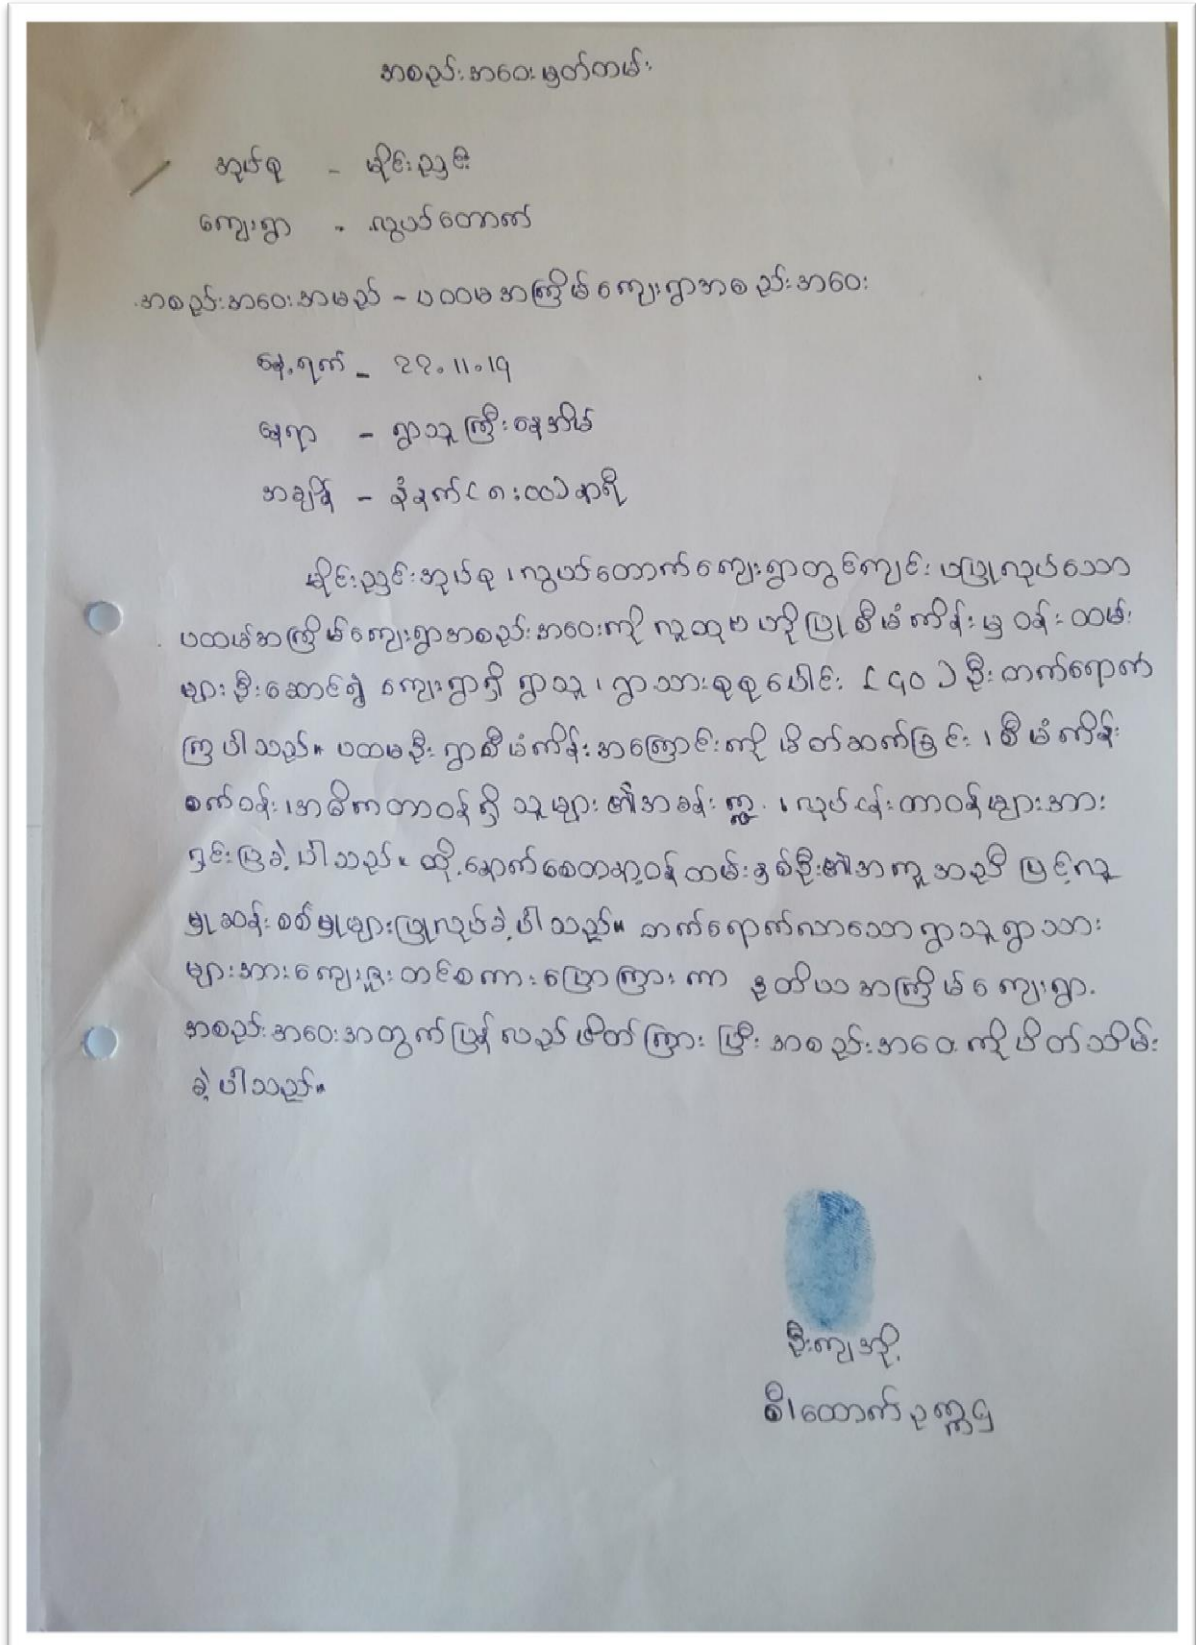 အစည်းအဝေးမှတ်တမ်း
အုပ်စု - မိုင်းညှင်း
ကျေးရွာ - လွယ်တောက်
အစည်းအဝေးအမည် - ပထမအကြိမ်ကျေးရွာအစည်းအဝေး
နေ့ရက် - ၁၁.၁၁.၁၅
နေရာ - ရွာသူကြီးနေအိမ်
အချိန် - နံနက် (၈:၀၀) နာရီ
မိုင်းညှင်းအုပ်စု ၊ လွယ်တောက်ကျေးရွာတွင်ကျင်းပပြုလုပ်သော
ပထမအကြိမ်ကျေးရွာအစည်းအဝေးကို လူထုဗဟိုပြုစီမံကိန်းမှ ဝန်ထမ်း
များဦးဆောင်၍ ကျေးရွာရှိ ရွာသူ ၊ ရွာသားစုစုပေါင်း (၄၀) ဦး တက်ရောက်
ကြပါသည်။ ပထမဦးစွာစီမံကိန်းအကြောင်းကို မိတ်ဆက်ခြင်း ၊ စီမံကိန်း
စက်ဝန်း ၊ အဓိကတာဝန်ရှိ သူများ၏အခန်းကဏ္ဍ ၊ လုပ်ငန်းတာဝန်များအား
ရှင်းပြခဲ့ပါသည်။ ထို့နောက်စေတနာ့ဝန်ထမ်းနှစ်ဦး၏အကူအညီဖြင့်လူ
မှုဆန်းစစ်မှုများပြုလုပ်ခဲ့ပါသည်။ တက်ရောက်လာသောရွာသူရွာသား
များအားကျေးဇူးတင်စကားပြောကြားကာ ဒုတိယအကြိမ်ကျေးရွာ
အစည်းအဝေးအတွက်ပြန်လည်ဖိတ်ကြားပြီး အစည်းအဝေးကိုပိတ်သိမ်း
ခဲ့ပါသည်။
ဦးကျအို့
စီ/ထောက်ဥက္ကဋ္ဌ